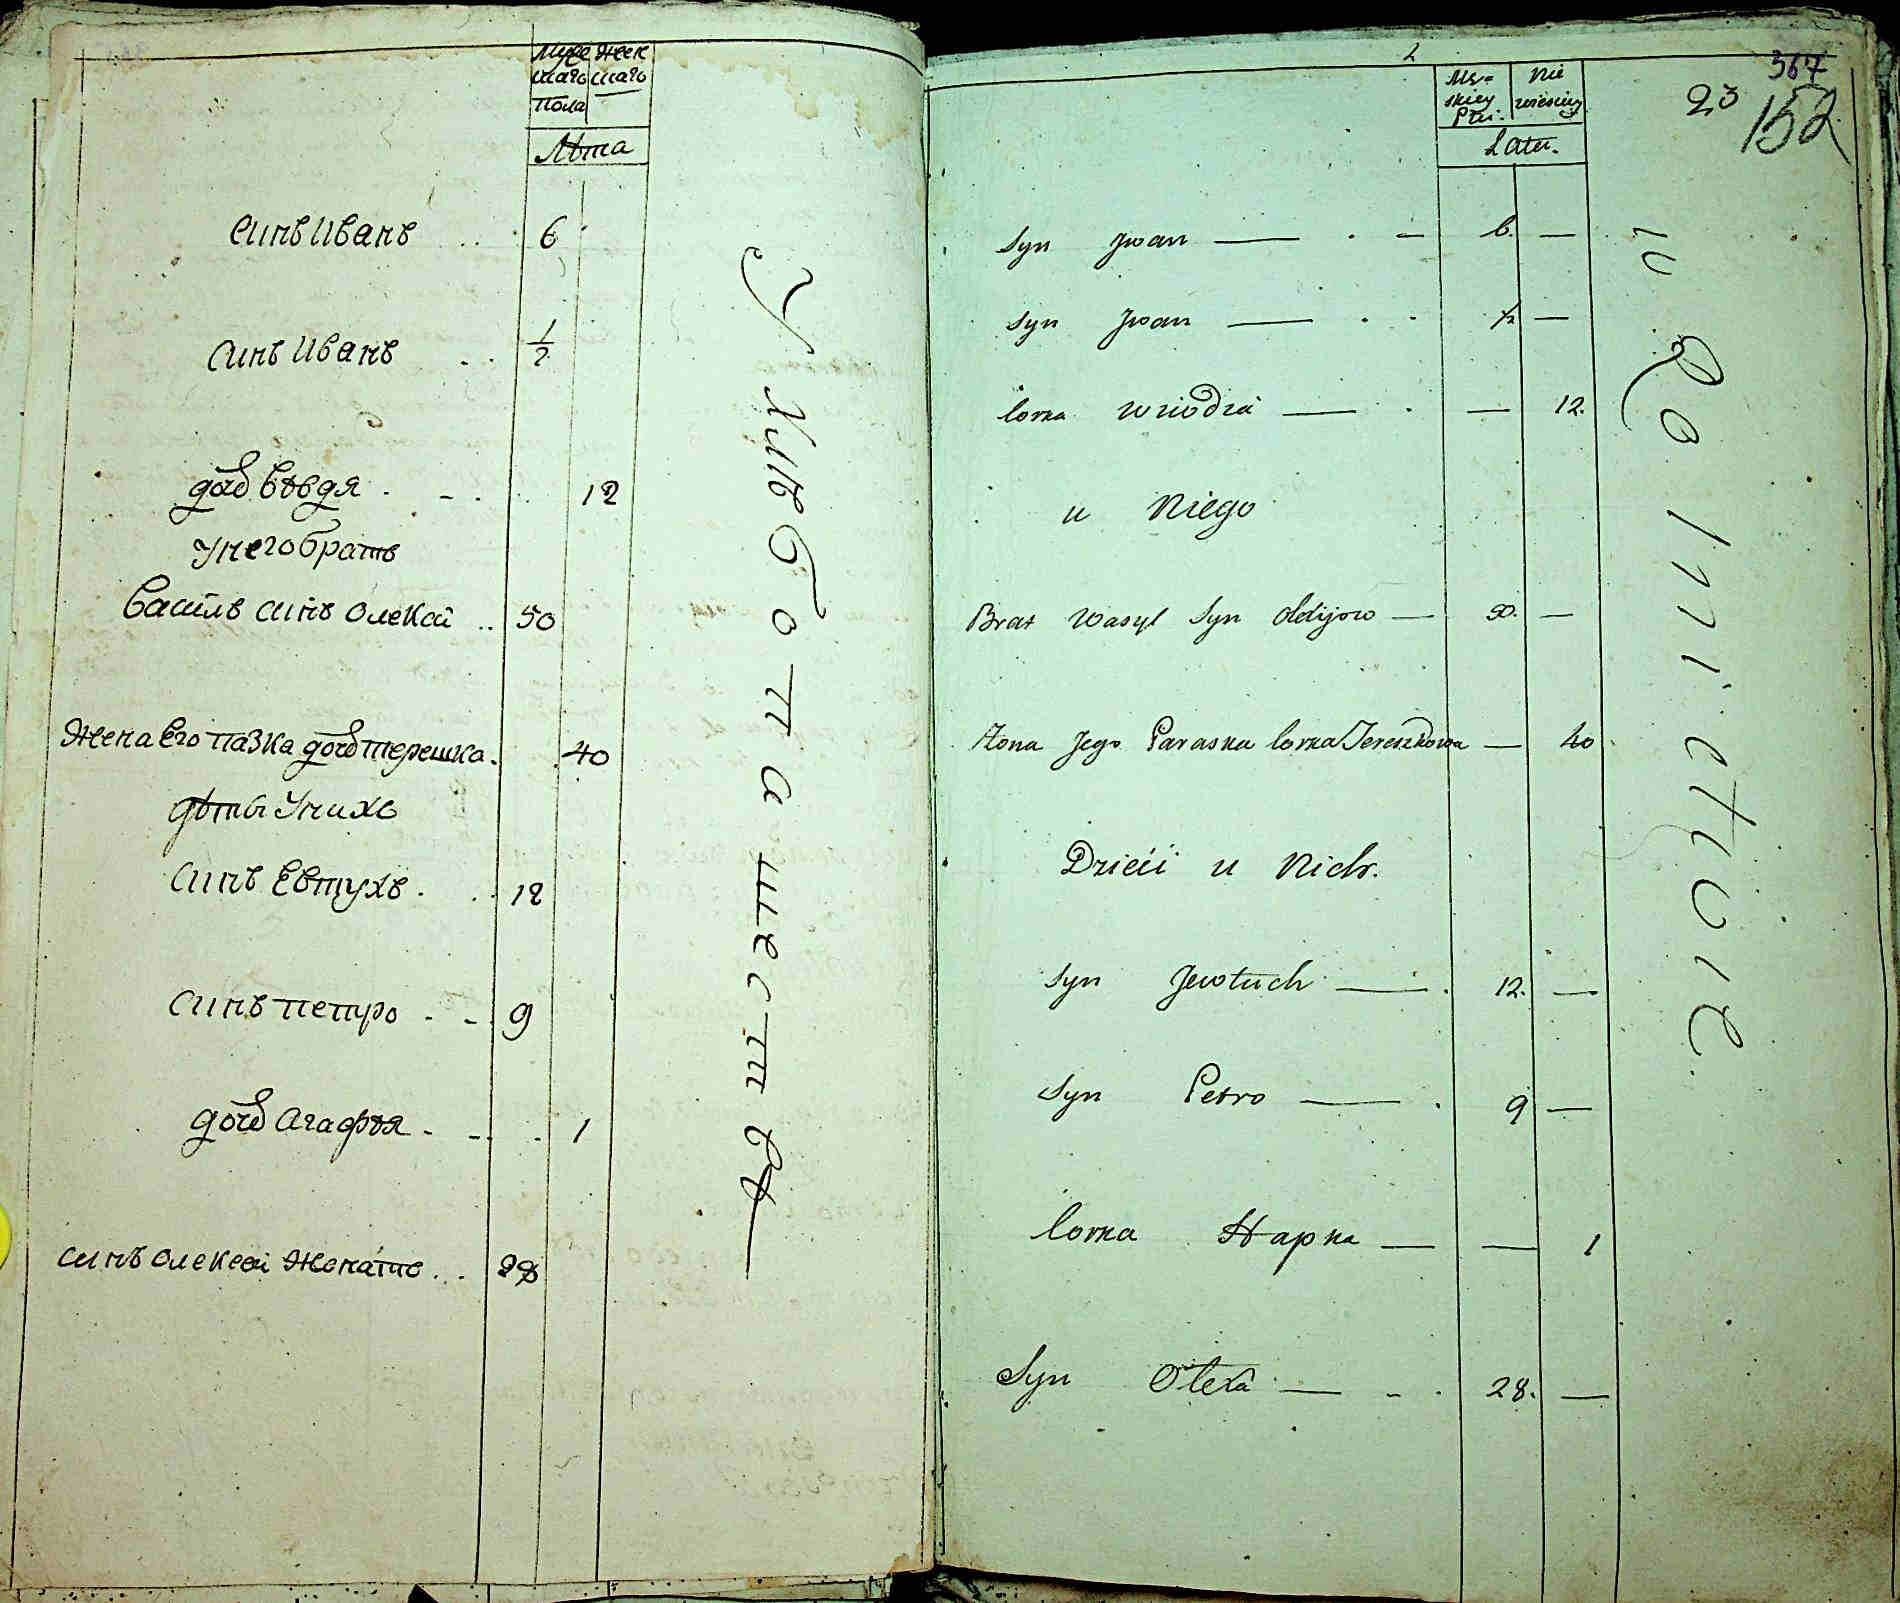 Муже Жен
скаго скаго
пола
Лѣта
Синъ Иванъ 6
Синъ Иванъ 1/2
дочь Вѣвдя 12
У него братъ
Василь синъ Олексѣй 50
Жена Его Пазка дочь Терешка 40
дѣти У нихъ
Синъ Евтухъ 12
Синъ Петро 9
дочь Агафѣя 1
синъ Олексей Женатъ 28
У Хлѣбопашествѣ
367
23
152
Mę=
skiey
Płci
Nie
wiesciey
Latu.
Syn Jwan 6.
Syn Jwan 1/2
Corka Wiwdia 12.
u Niego
Brat Wasyl Syn Olexijow 50.
Żona Jego Paraska Corka Tereszkowa 40
Dzieci u Nich.
Syn Jewtuch 12.
Syn Petro 9
Corka Hapka 1
Syn Olexa 28.
w Rolnictwie